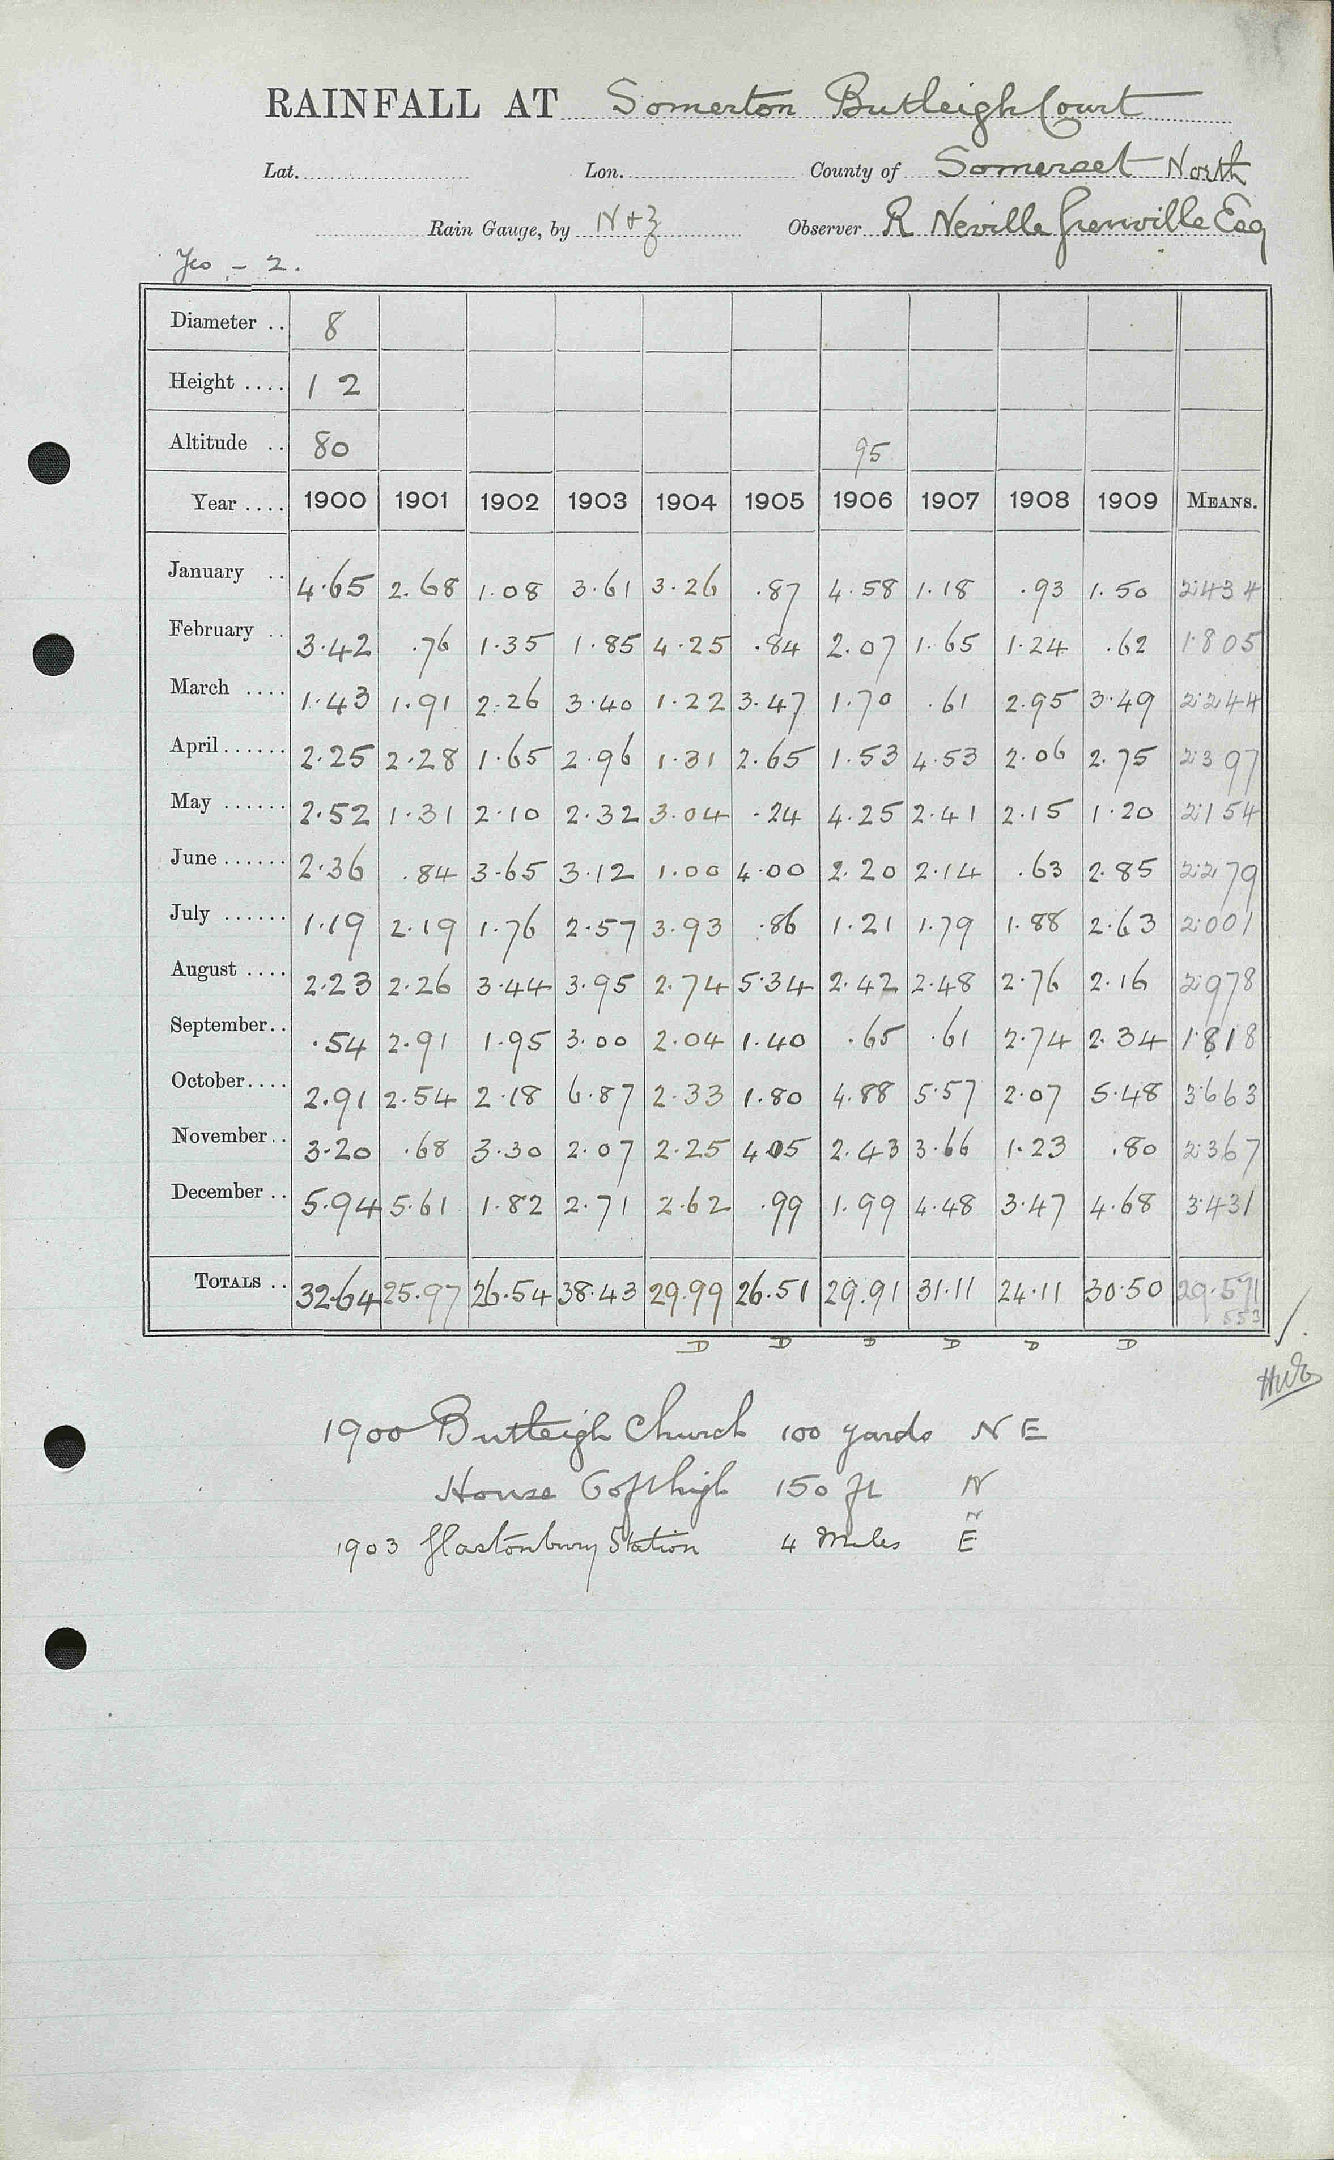 RAINFALL AT Somerton Butleigh Court
Lat. Lon. County of Somerset North
Rain Gauge, by N+Z Observer R Neville Grenville Esq
Yeo - 2.
Diameter .. 8
Height .... 12
Altitude .. 80 95
Year .... 1900 1901 1902 1903 1904 1905 1906 1907 1908 1909 MEANS.
January .. 4.65 2.68 1.08 3.61 3.26 .87 4.58 1.18 .93 1.50 2.434
February .. 3.42 .76 1.35 1.85 4.25 .84 2.07 1.65 1.24 .62 1.805
March .... 1.43 1.91 2.26 3.40 1.22 3.47 1.70 .61 2.95 3.49 2.244
April ...... 2.25 2.28 1.65 2.96 1.31 2.65 1.53 4.53 2.06 2.75 2.397
May ...... 2.52 1.31 2.10 2.32 3.04 .24 4.25 2.41 2.15 1.20 2.154
June ...... 2.36 .84 3.65 3.12 1.00 4.00 2.20 2.14 .63 2.85 2.279
July ...... 1.19 2.19 1.76 2.57 3.93 .86 1.21 1.79 1.88 2.63 2.001
August .... 2.23 2.26 3.44 3.95 2.74 5.34 2.42 2.48 2.76 2.16 2.978
September .. .54 2.91 1.95 3.00 2.04 1.40 .65 .61 2.74 2.34 1.818
October .... 2.91 2.54 2.18 6.87 2.33 1.80 4.88 5.57 2.07 5.48 3.663
November .. 3.20 .68 3.30 2.07 2.25 4.05 2.43 3.66 1.23 .80 2.367
December .. 5.94 5.61 1.82 2.71 2.62 .99 1.99 4.48 3.47 4.68 3.431
TOTALS .. 32.64 25.97 26.54 38.43 29.99 26.51 29.91 31.11 24.11 30.50 29.571
553
D D D D D D
1900 Butleigh Church 100 yards N E
House 60ft high 150 ft N
N
1903 Glastonbury Station 4 Miles E